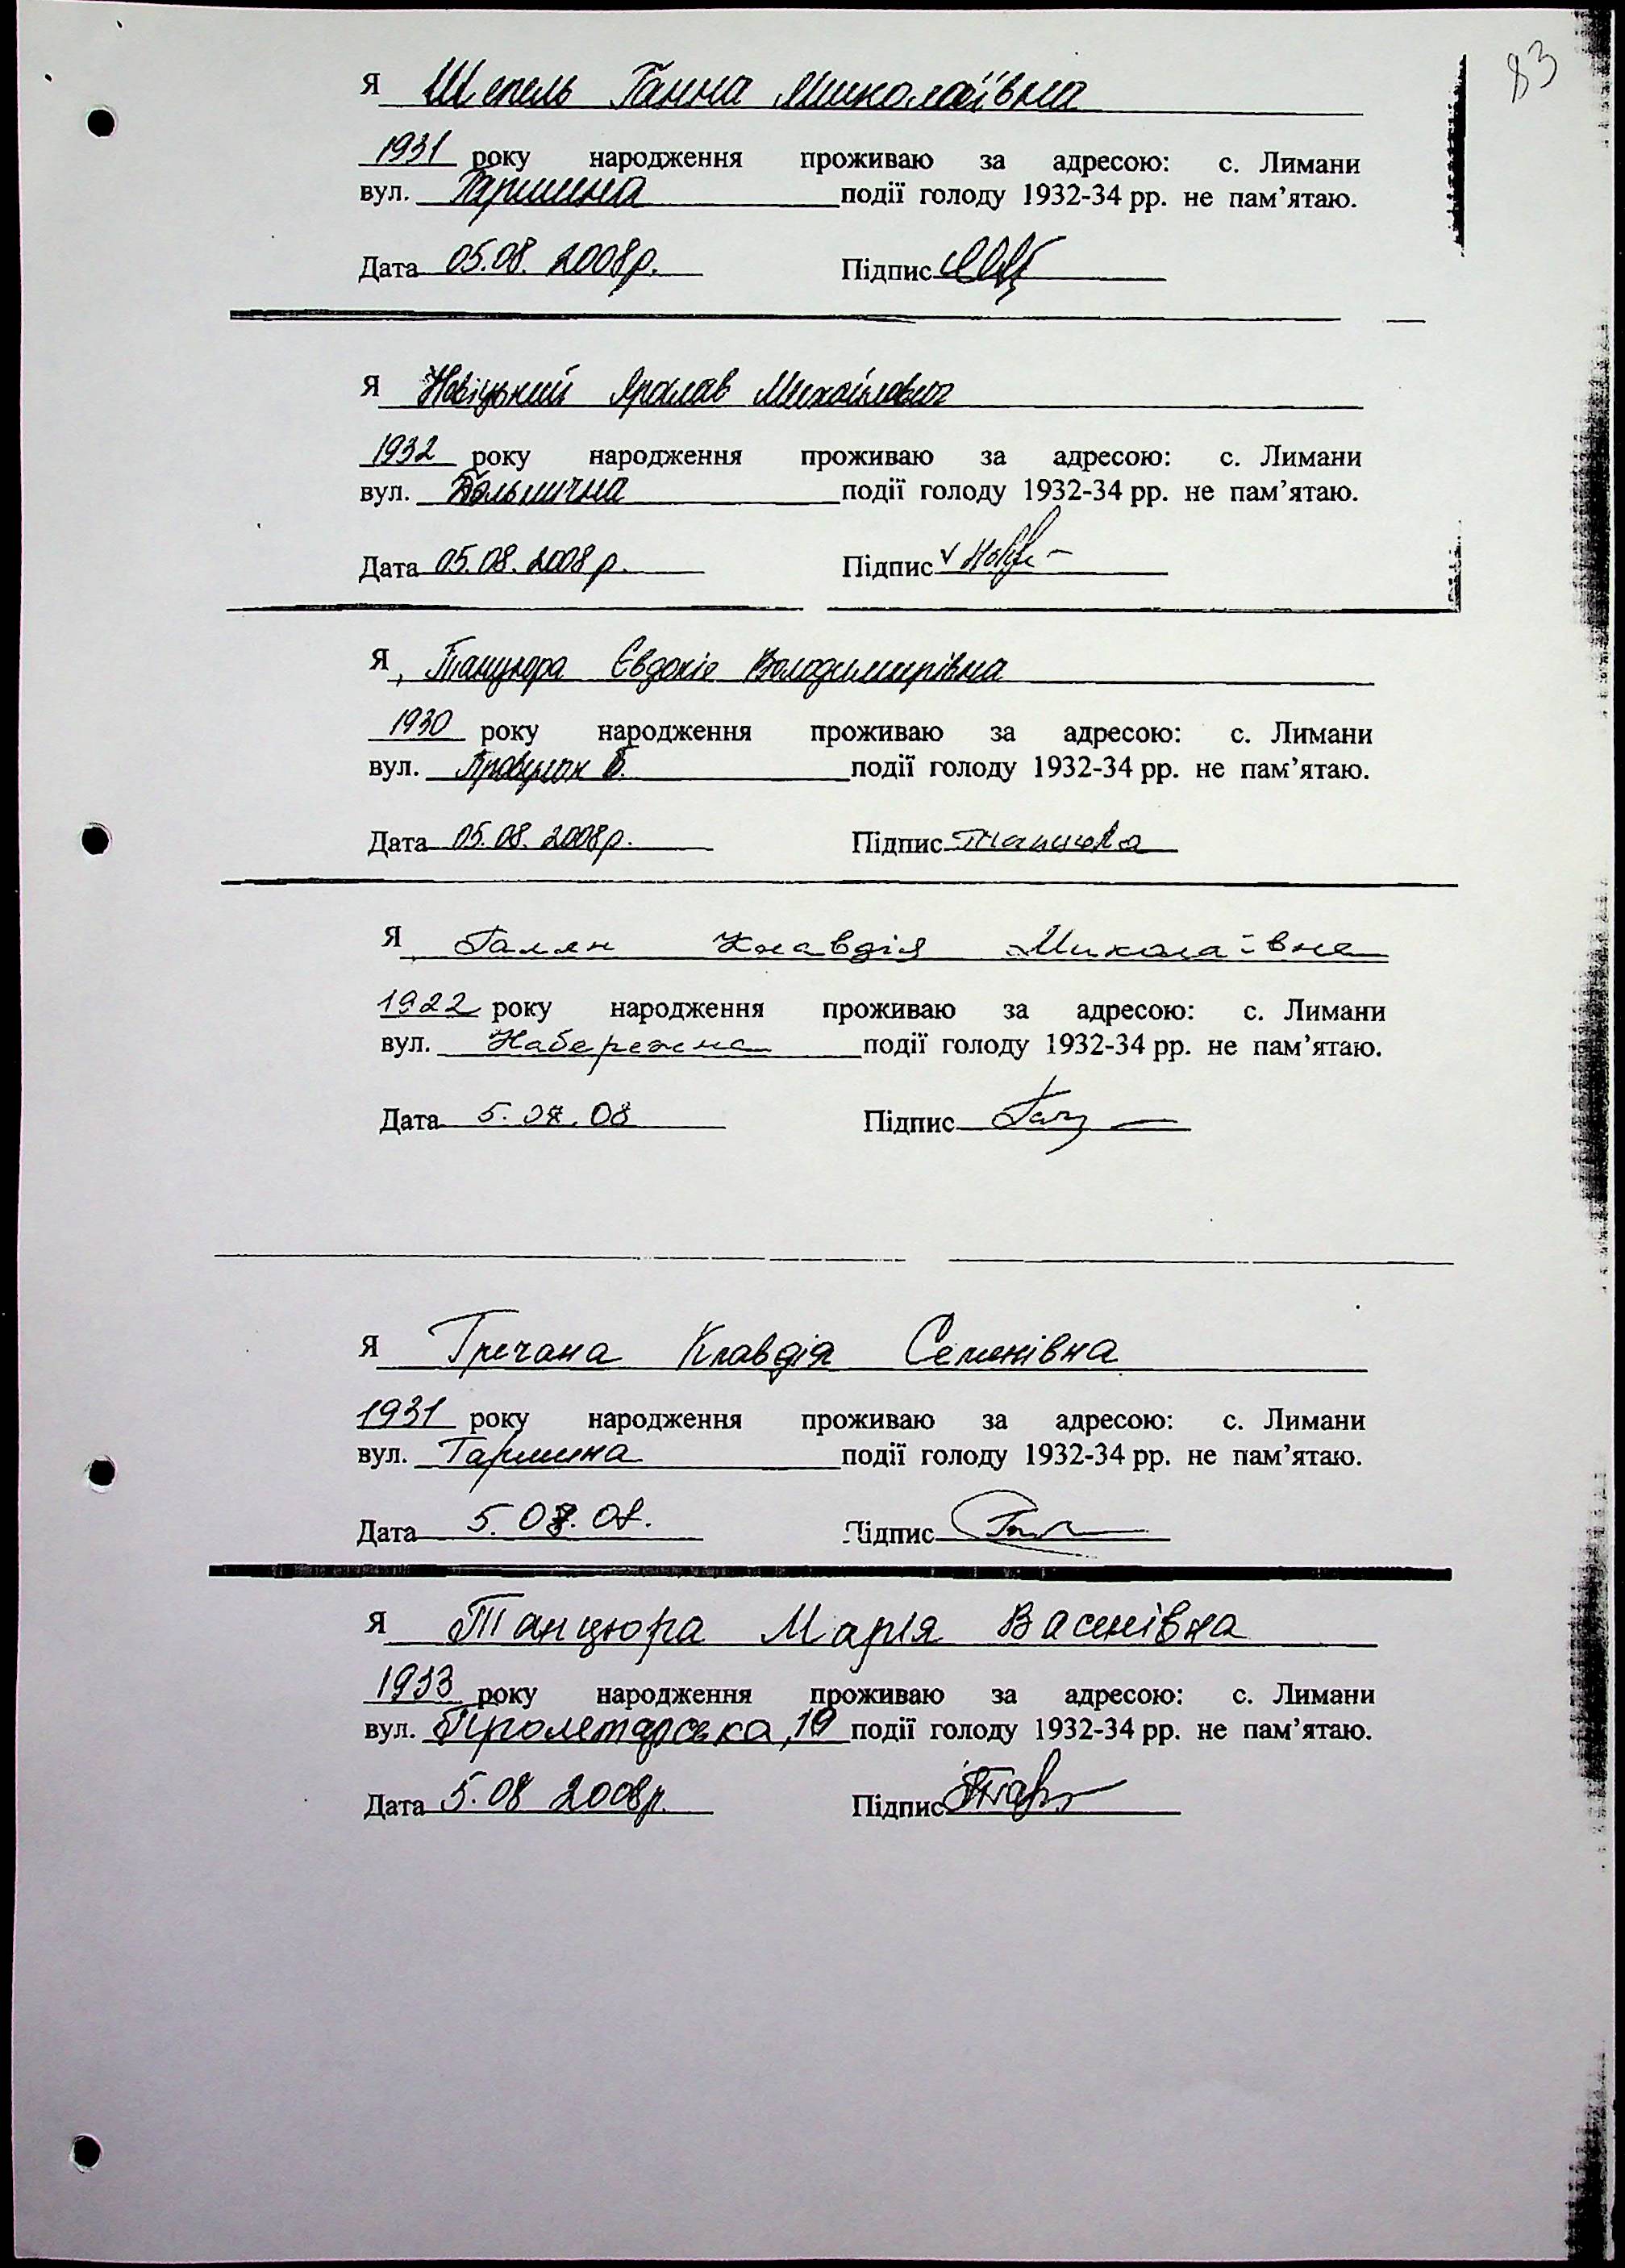 83
Я Шепель Ганна Миколаївна
1931 року народження проживаю за адресою: с. Лимани
вул. Гаршина події голоду 1932-34 рр. не пам’ятаю.
Дата 05.08.2008р. Підпис
Я Новіцький Ярослав Михайлович
1932 року народження проживаю за адресою: с. Лимани
вул. Больнична події голоду 1932-34 рр. не пам’ятаю.
Дата 05.08.2008р. Підпис
Я, Танцюра Євдокія Володимирівна
1930 року народження проживаю за адресою: с. Лимани
вул. Провулок події голоду 1932-34 рр. не пам’ятаю.
Дата 05.08.2008р. Підпис
Я Клавдія Миколаївна
1922 року народження проживаю за адресою: с. Лимани
вул. Набережна події голоду 1932-34 рр. не пам’ятаю.
Дата 5. 08 Підпис
Я Гречана Клавдія Семенівна
1931 року народження проживаю за адресою: с. Лимани
вул. Гаршина події голоду 1932-34 рр. не пам’ятаю.
Дата 5. Підпис
Я Танцюра Марія Василівна
1933 року народження проживаю за адресою: с. Лимани
вул. Пролетарська, 19 події голоду 1932-34 рр. не пам’ятаю.
Дата 5.08 2008р. Підпис